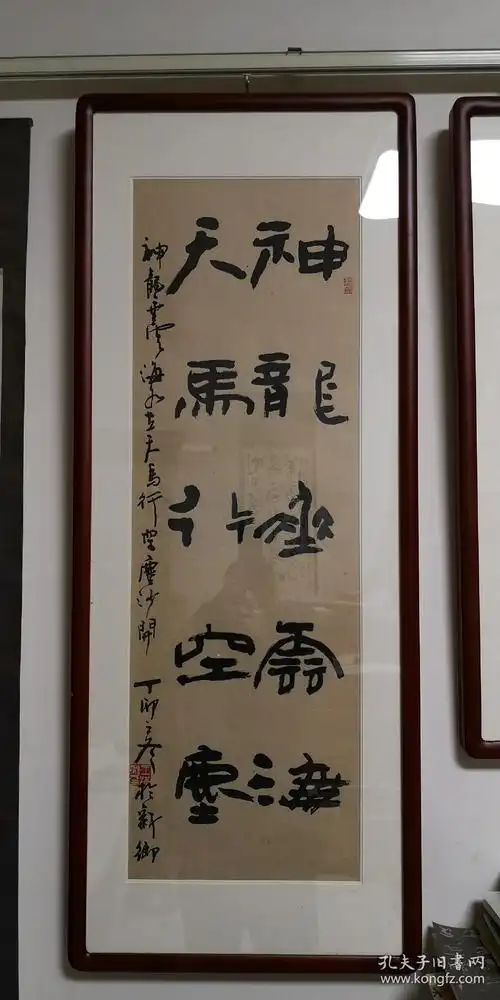 神龍坐雲海
天馬行空塵
神龍雲海天馬行空塵沙開 丁卯之冬於新鄉
孔夫子旧書网
www.kongfz.com